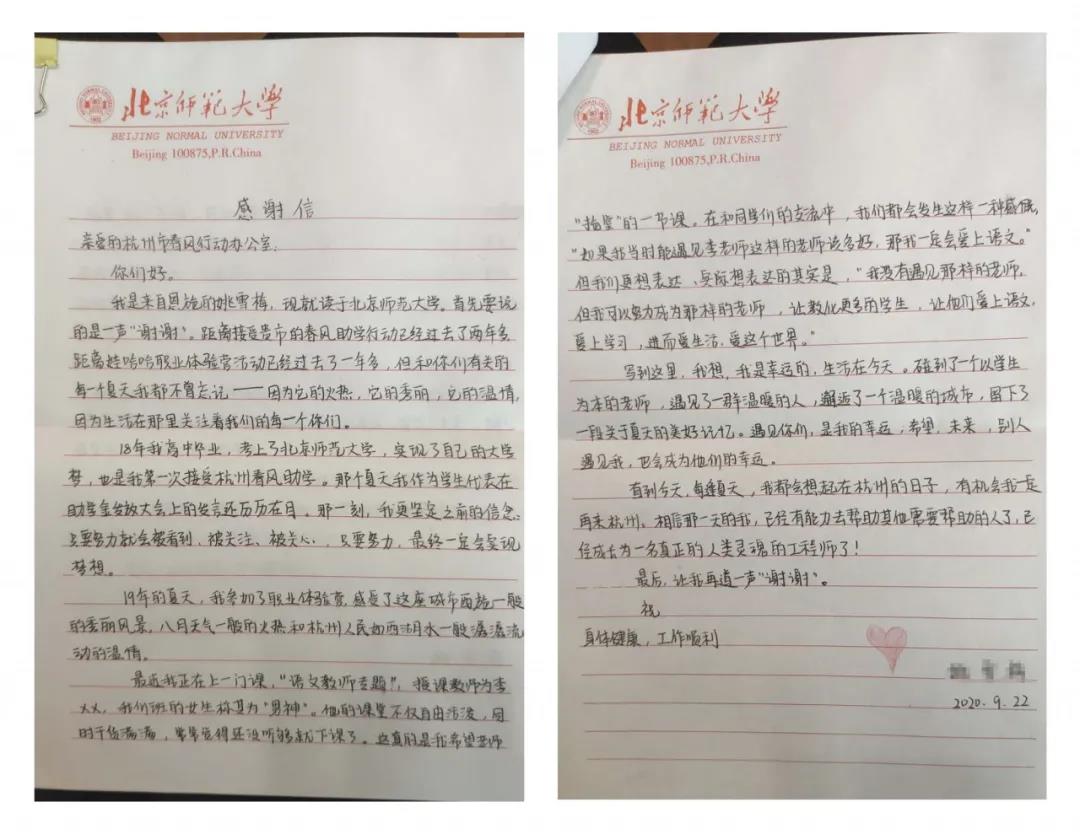 北京师范大学
BEIJING NORMAL UNIVERSITY
Beijing 100875,P.R.China
感谢信
亲爱的杭州市春风行动办公室:
你们好。
我是来自恩施的姚雪梅，现就读于北京师范大学。首先要说
的是一声“谢谢”。距离接受贵市的春风助学行动已经过去了两年多
距离娃哈哈职业体验营活动已经过去了一年多，但和你们有关的
每一个夏天我都不曾忘记——因为它的火热，它的秀丽，它的温情，
因为生活在那里关注着我们的每一个你们。
18年我高中毕业，考上了北京师范大学，实现了自己的大学
梦，也是我第一次接受杭州春风助学。那个夏天我作为学生代表在
助学金发放大会上的发言还历历在目。那一刻，我更坚定之前的信念：
只要努力就会被看到、被关注、被关心，只要努力，最终一定会实现
梦想。
19年的夏天，我参加了职业体验营，感受了这座城市西施一般
的秀丽风景，八月天气一般的火热和杭州人民如西湖水一般潺潺流
动的温情。
最近我正在上一门课，“语文教师专题”，授课教师为李
xx，我们班的女生称其为“男神”。他的课堂不仅自由活泼，同
时干货满满，常常觉得还没听够就下课了。这真的是我希望老师
北京师范大学
BEIJING NORMAL UNIVERSITY
Beijing 100875,P.R.China
“拖堂”的一节课。在和同学们的交流中，我们都会发生这样一种感慨，
“如果我当时能遇见李老师这样的老师该多好，那我一定会爱上语文。”
但我们更想表达、实际想表达的其实是，“我没有遇见那样的老师，
但我可以努力成为那样的老师，让教化更多的学生，让他们爱上语文，
爱上学习，进而爱生活，爱这个世界。”
写到这里，我想，我是幸运的，生活在今天。碰到了一个以学生
为本的老师，遇见了一群温暖的人，邂逅了一个温暖的城市，留下了
一段关于夏天的美好记忆。遇见你们，是我的幸运；希望，未来，别人
遇见我，也会成为他们的幸运。
直到今天，每逢夏天，我都会想起在杭州的日子，有机会我一定
再来杭州。相信那一天的我，已经有能力去帮助其他需要帮助的人了，已
经成长为一名真正的人类灵魂的工程师了！
最后，让我再道一声“谢谢”。
祝
身体健康，工作顺利
2020.9.22